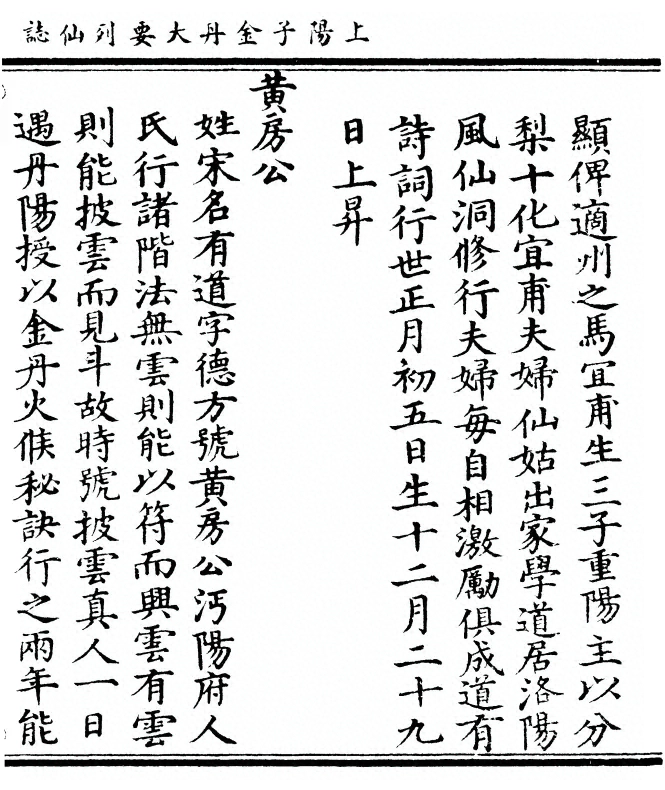 上陽子金丹大要列仙誌
顯俾適州之馬宜甫生三子重陽主以分
梨十化宜甫夫婦仙姑出家學道居洛陽
風仙洞修行夫婦每自相激勵俱成道有
詩詞行世正月初五日生十二月二十九
日上昇
黄房公
姓宋名有道字德方號黄房公沔陽府人
氏行諸階法無雲則能以符而興雲有雲
則能披雲而見斗故時號披雲真人一日
遇丹陽授以金丹火候秘訣行之兩年能